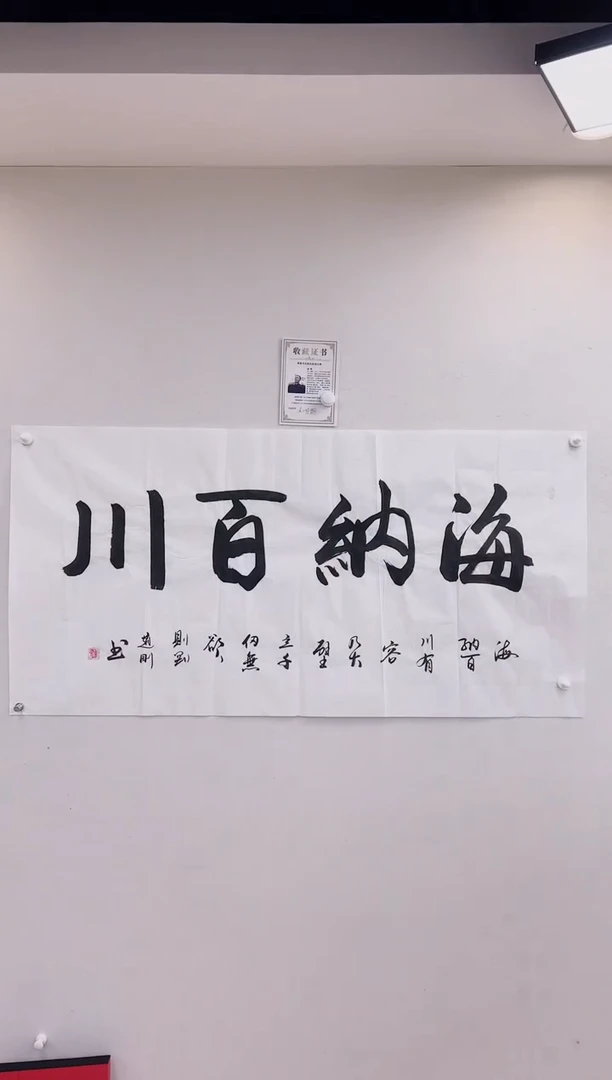 收藏证书
海納百川
海納百川有容乃大壁立千仞無欲則剛
书